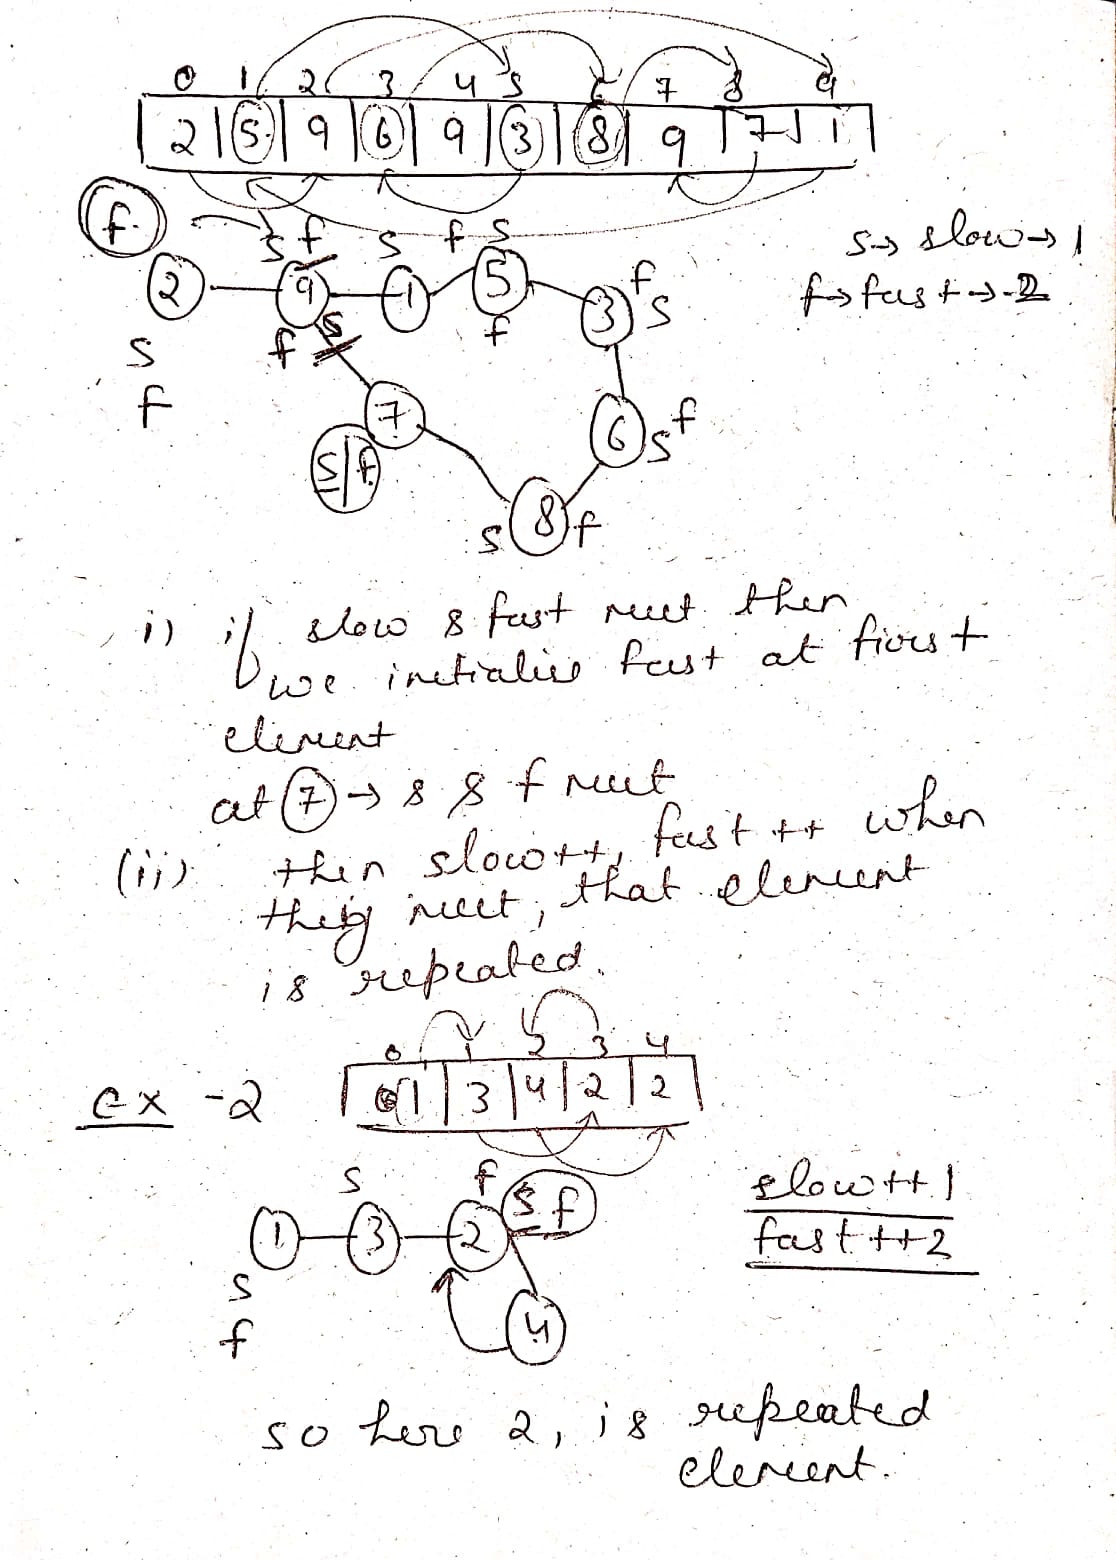 0 1 2 3 4 5 6 7 8 9
2 5 9 6 9 3 8 9 7 1
f
s f s f s
2 9 1 5 3 f s
s→ slow→ 1
f→ fast→ 2
s f s f
f
7 6 s f
s/f
s 8 f
i) if slow & fast meet then
we initialise fast at first
element
at 7 → s & f meet
(ii) then slow++, fast++ when
they meet, that element
is repeated.
0 1 2 3 4
ex -2 1 3 4 2 2
s f s f
1 3 2
s
f 4
slow++1
fast++2
so here 2, is repeated
element.